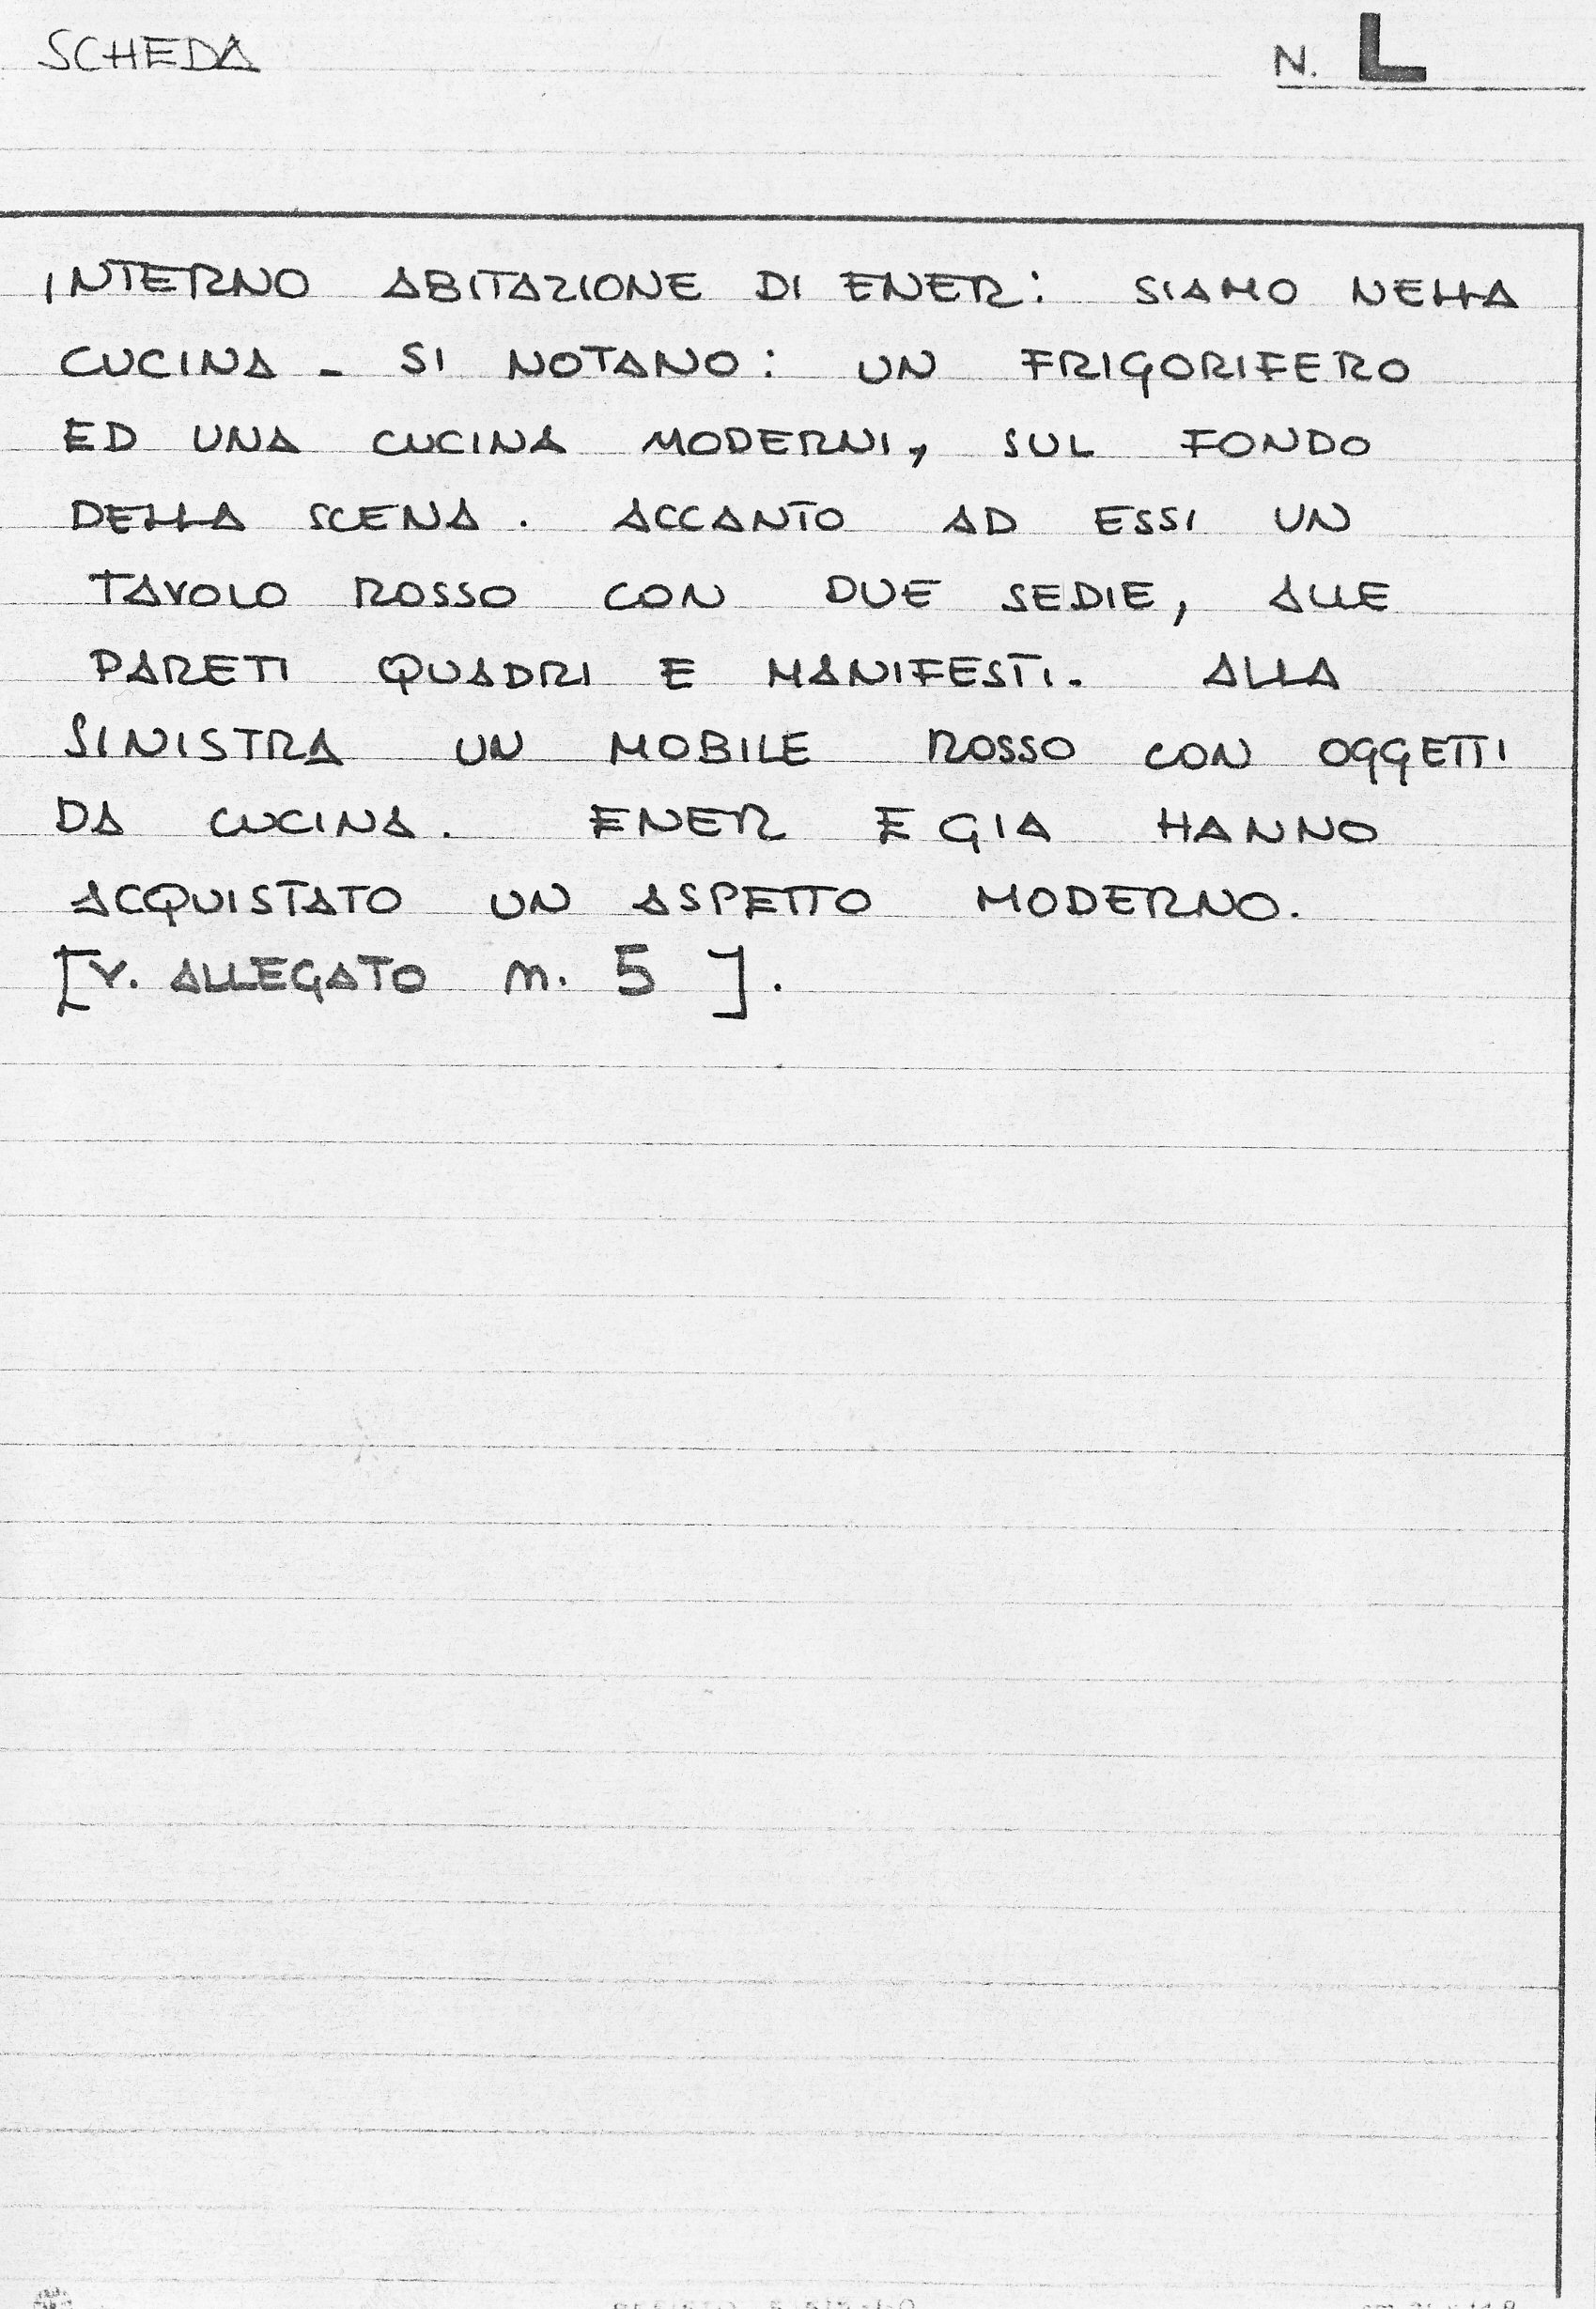 SCHEDA N. L
INTERNO ABITAZIONE DI ENER: SIAMO NELLA
CUCINA - SI NOTANO: UN FRIGORIFERO
ED UNA CUCINA MODERNI, SUL FONDO
DELLA SCENA. ACCANTO AD ESSI UN
TAVOLO ROSSO CON DUE SEDIE, ALLE
PARETI QUADRI E MANIFESTI. ALLA
SINISTRA UN MOBILE ROSSO CON OGGETTI
DA CUCINA. ENER E GIA HANNO
ACQUISTATO UN ASPETTO MODERNO.
[V. ALLEGATO n. 5].